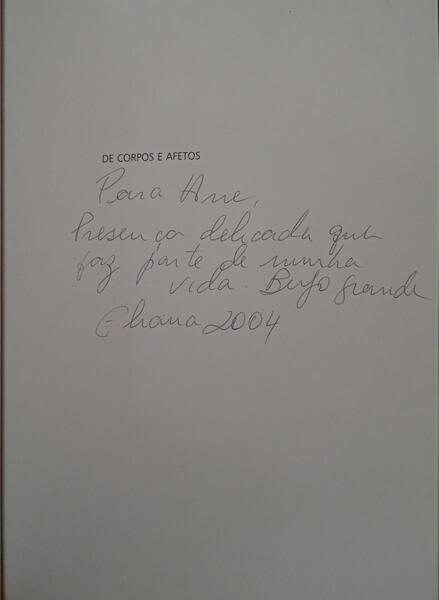 DE CORPOS E AFETOS
Para Ane,
Presença delicada que
faz parte de minha
vida. Beijo grande
Eliana 2004